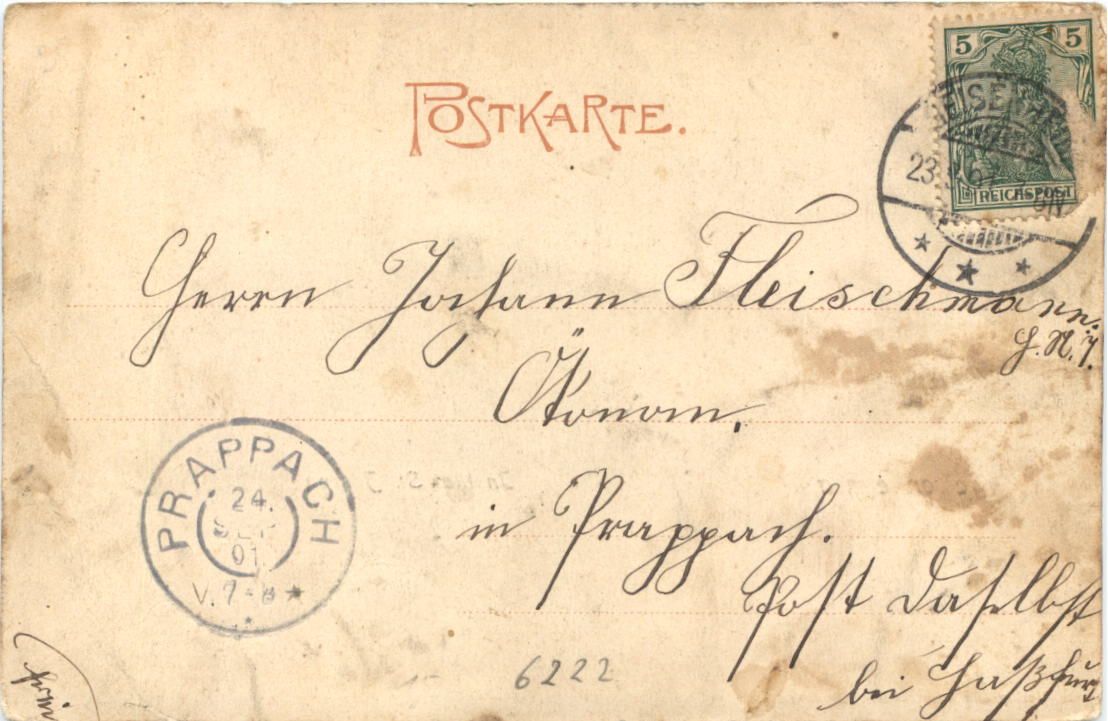 POSTKARTE.
5 5
REICHSPOST
23
Herrn Johann Fleischmann
H. N. 7.
Ökonom.
in Prappach.
Post daselbst
bei Haßfurt
PRAPPACH
24.
SEP
01
V. 7-8
6222